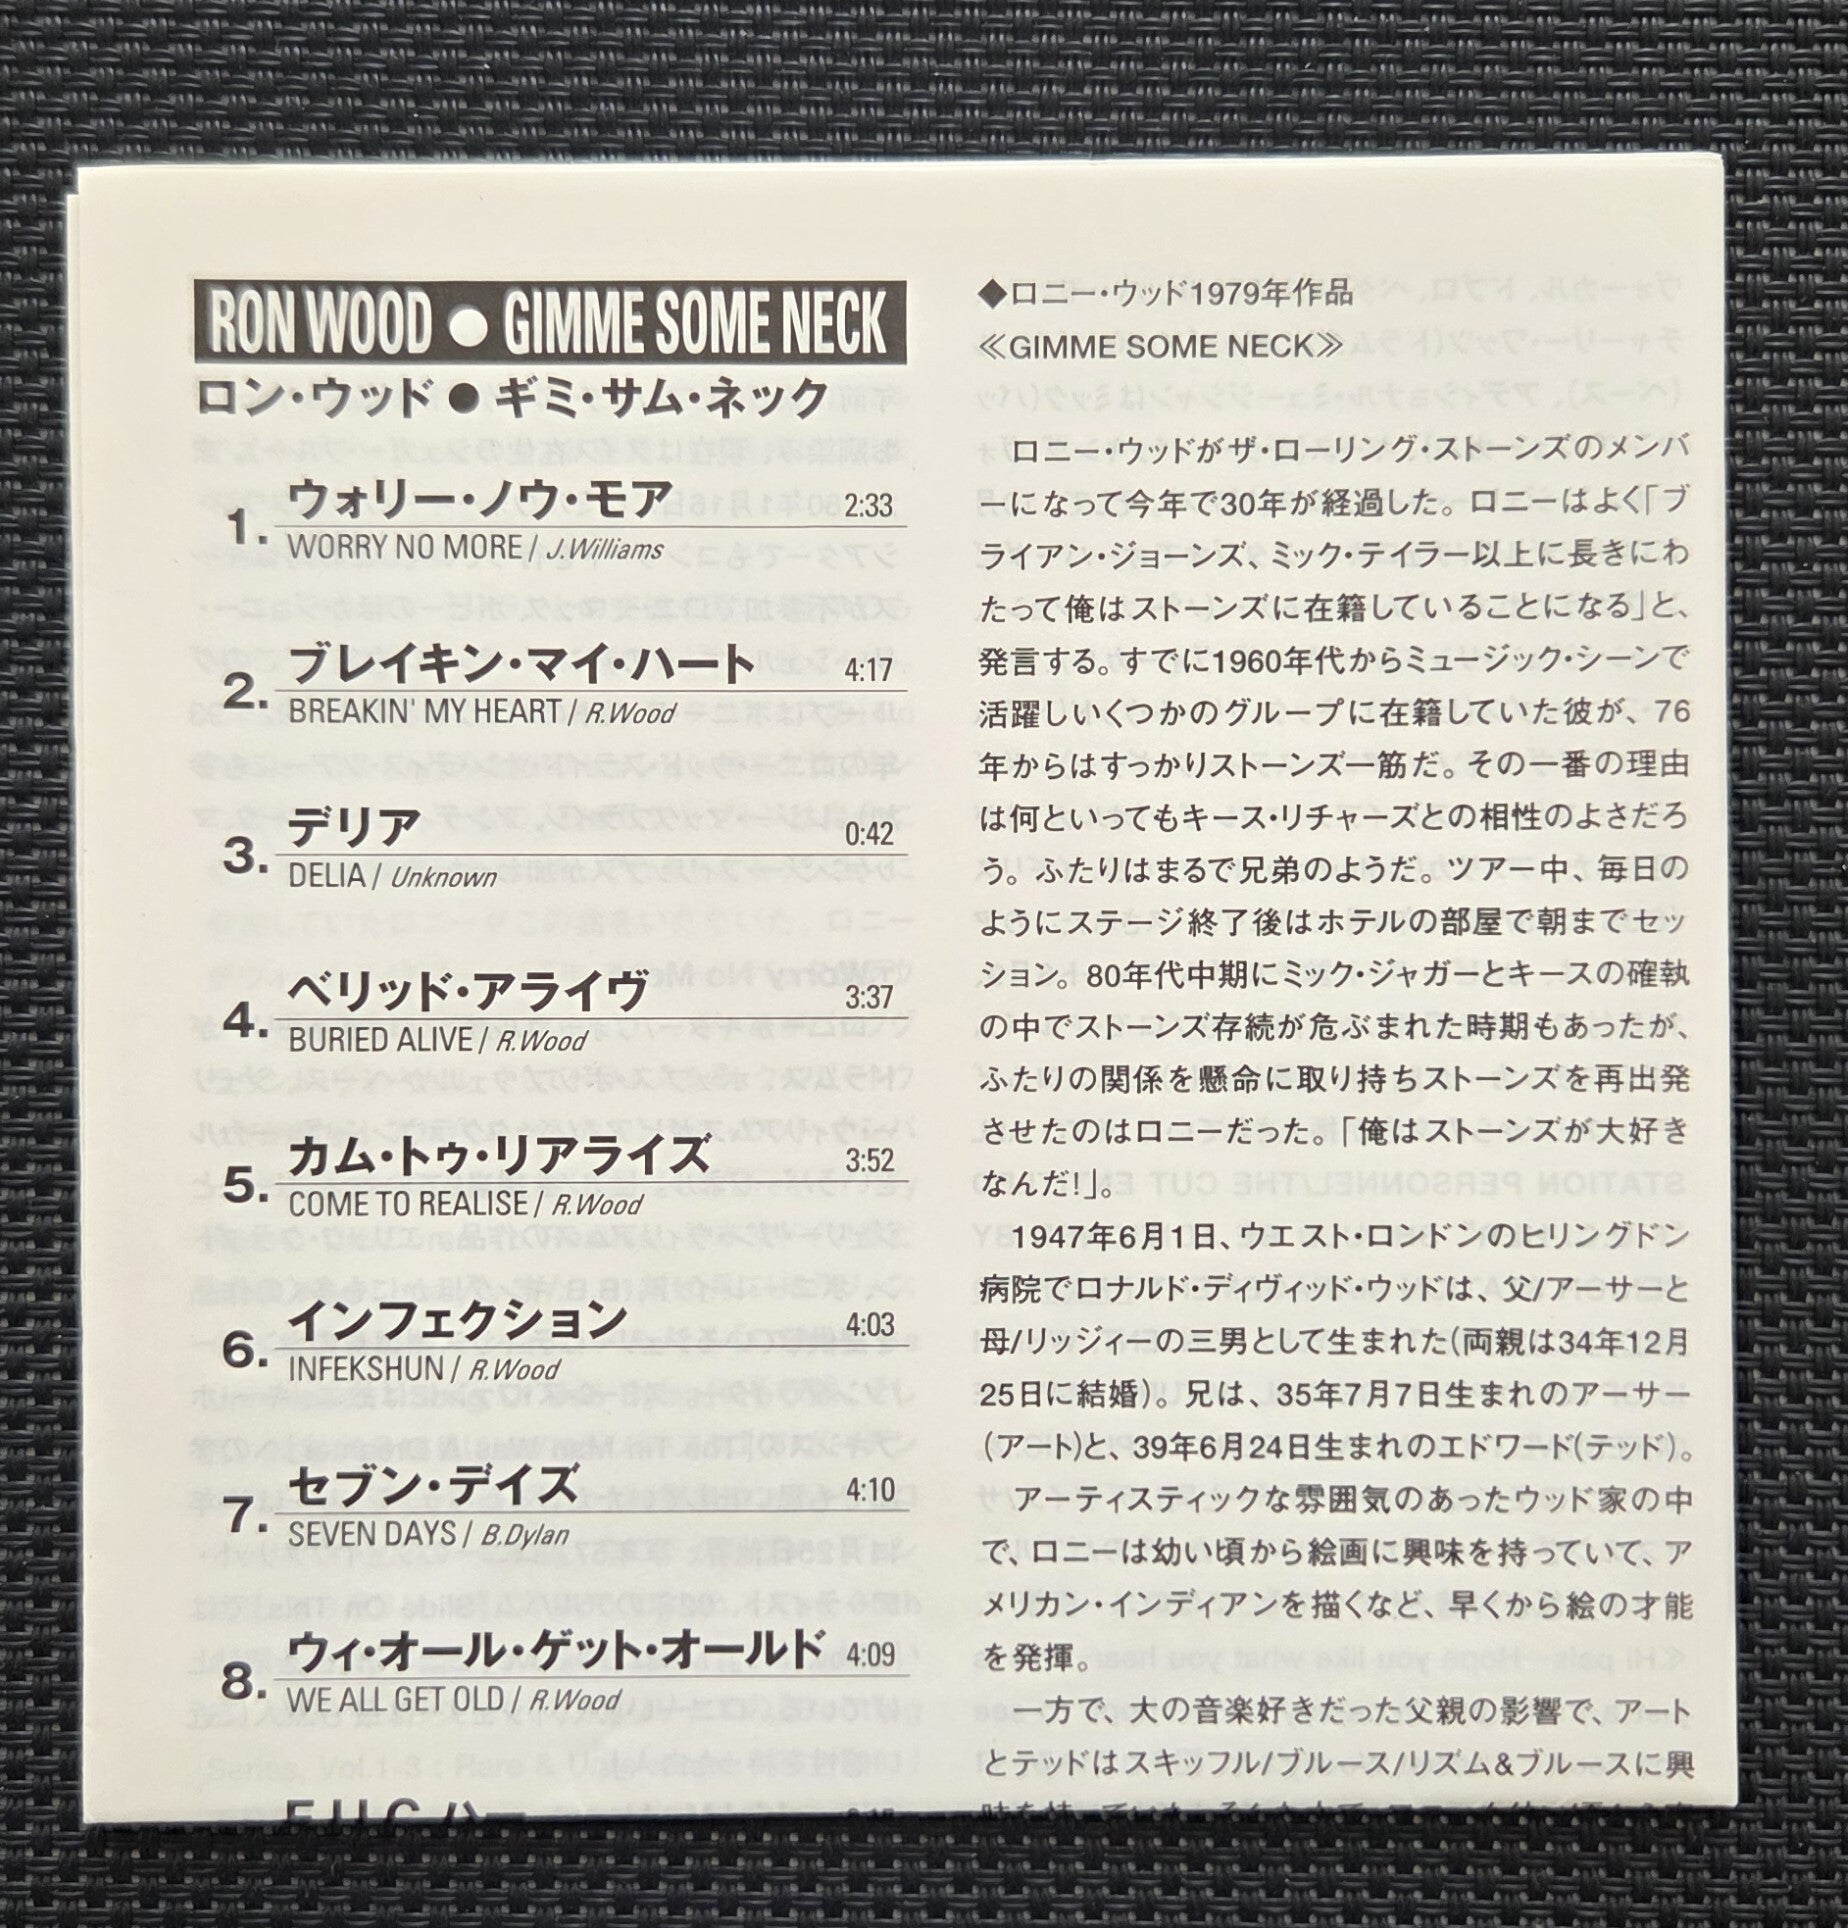 RON WOOD ● GIMME SOME NECK
ロン・ウッド ● ギミ・サム・ネック
1. ウォリー・ノウ・モア 2:33
WORRY NO MORE / J.Williams
2. ブレイキン・マイ・ハート 4:17
BREAKIN' MY HEART / R.Wood
3. デリア 0:42
DELIA / Unknown
4. ベリッド・アライヴ 3:37
BURIED ALIVE / R.Wood
5. カム・トゥ・リアライズ 3:52
COME TO REALISE / R.Wood
6. インフェクション 4:03
INFEKSHUN / R.Wood
7. セブン・デイズ 4:10
SEVEN DAYS / B.Dylan
8. ウィ・オール・ゲット・オールド 4:09
WE ALL GET OLD / R.Wood
◆ロニー・ウッド1979年作品
≪GIMME SOME NECK≫
ロニー・ウッドがザ・ローリング・ストーンズのメンバ
ーになって今年で30年が経過した。ロニーはよく「ブ
ライアン・ジョーンズ、ミック・テイラー以上に長きにわ
たって俺はストーンズに在籍していることになる」と、
発言する。すでに1960年代からミュージック・シーンで
活躍しいくつかのグループに在籍していた彼が、76
年からはすっかりストーンズ一筋だ。その一番の理由
は何といってもキース・リチャーズとの相性のよさだろ
う。ふたりはまるで兄弟のようだ。ツアー中、毎日の
ようにステージ終了後はホテルの部屋で朝までセッ
ション。80年代中期にミック・ジャガーとキースの確執
の中でストーンズ存続が危ぶまれた時期もあったが、
ふたりの関係を懸命に取り持ちストーンズを再出発
させたのはロニーだった。「俺はストーンズが大好き
なんだ!」。
1947年6月1日、ウエスト・ロンドンのヒリングドン
病院でロナルド・ディヴィッド・ウッドは、父/アーサーと
母/リッジィーの三男として生まれた(両親は34年12月
25日に結婚)。兄は、35年7月7日生まれのアーサー
(アート)と、39年6月24日生まれのエドワード(テッド)。
アーティスティックな雰囲気のあったウッド家の中
で、ロニーは幼い頃から絵画に興味を持っていて、ア
メリカン・インディアンを描くなど、早くから絵の才能
を発揮。
一方で、大の音楽好きだった父親の影響で、アート
とテッドはスキッフル/ブルース/リズム&ブルースに興